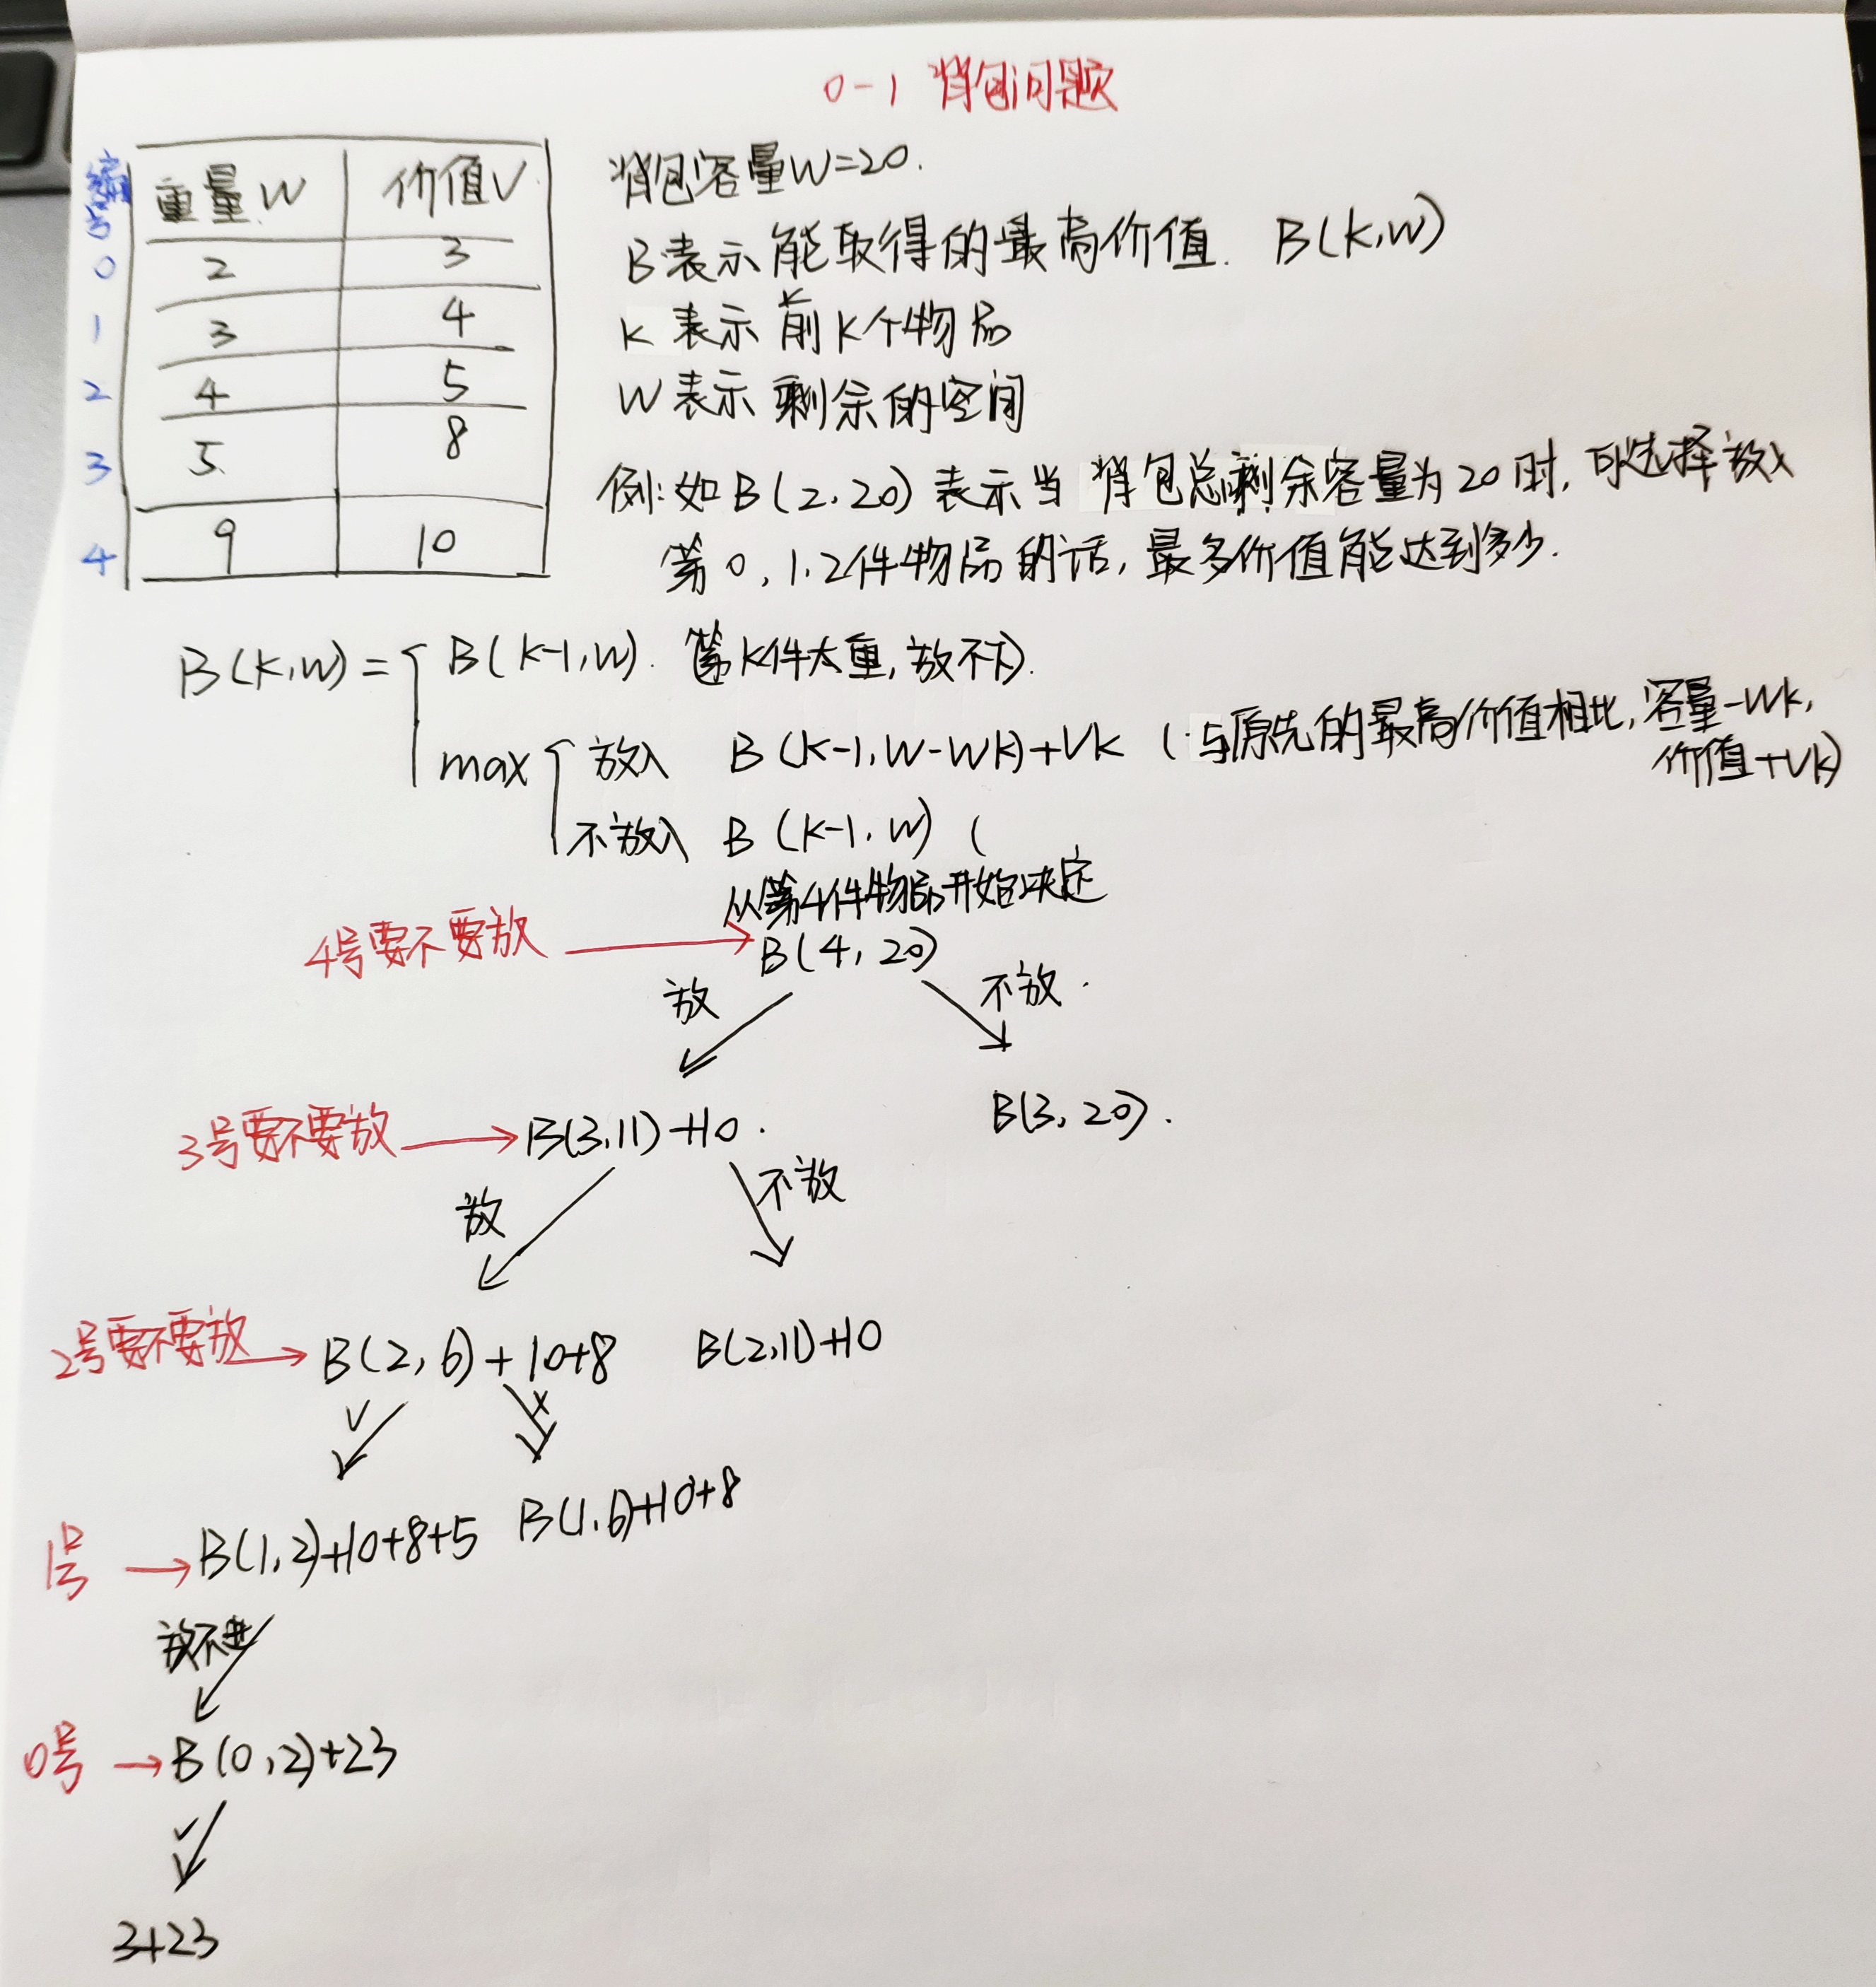 0-1 背包问题
编号 重量W 价值V
0 2 3
1 3 4
2 4 5
3 5 8
4 9 10
背包容量W=20.
B表示能取得的最高价值. B(k,w)
K 表示前K个物品
W表示剩余的空间
例:如B(2,20)表示当背包总剩余容量为20时,可选择放入
第0,1,2件物品的话,最多价值能达到多少.
B(k,w)= B(k-1,w). 第K件太重,放不下.
max 放入 B(k-1,w-wk)+Vk (与原先的最高价值相比,容量-Wk,
价值+Vk)
不放入 B(k-1,w) (
从第4件物品开始决定
4号要不要放 → B(4,20)
放 不放.
B(3,20).
3号要不要放 → B(3,11)+10.
放 不放
2号要不要放 → B(2,6)+10+8 B(2,11)+10
✓ ×
1号 → B(1,2)+10+8+5 B(1,6)+10+8
放不进
0号 → B(0,2)+23
✓
3+23